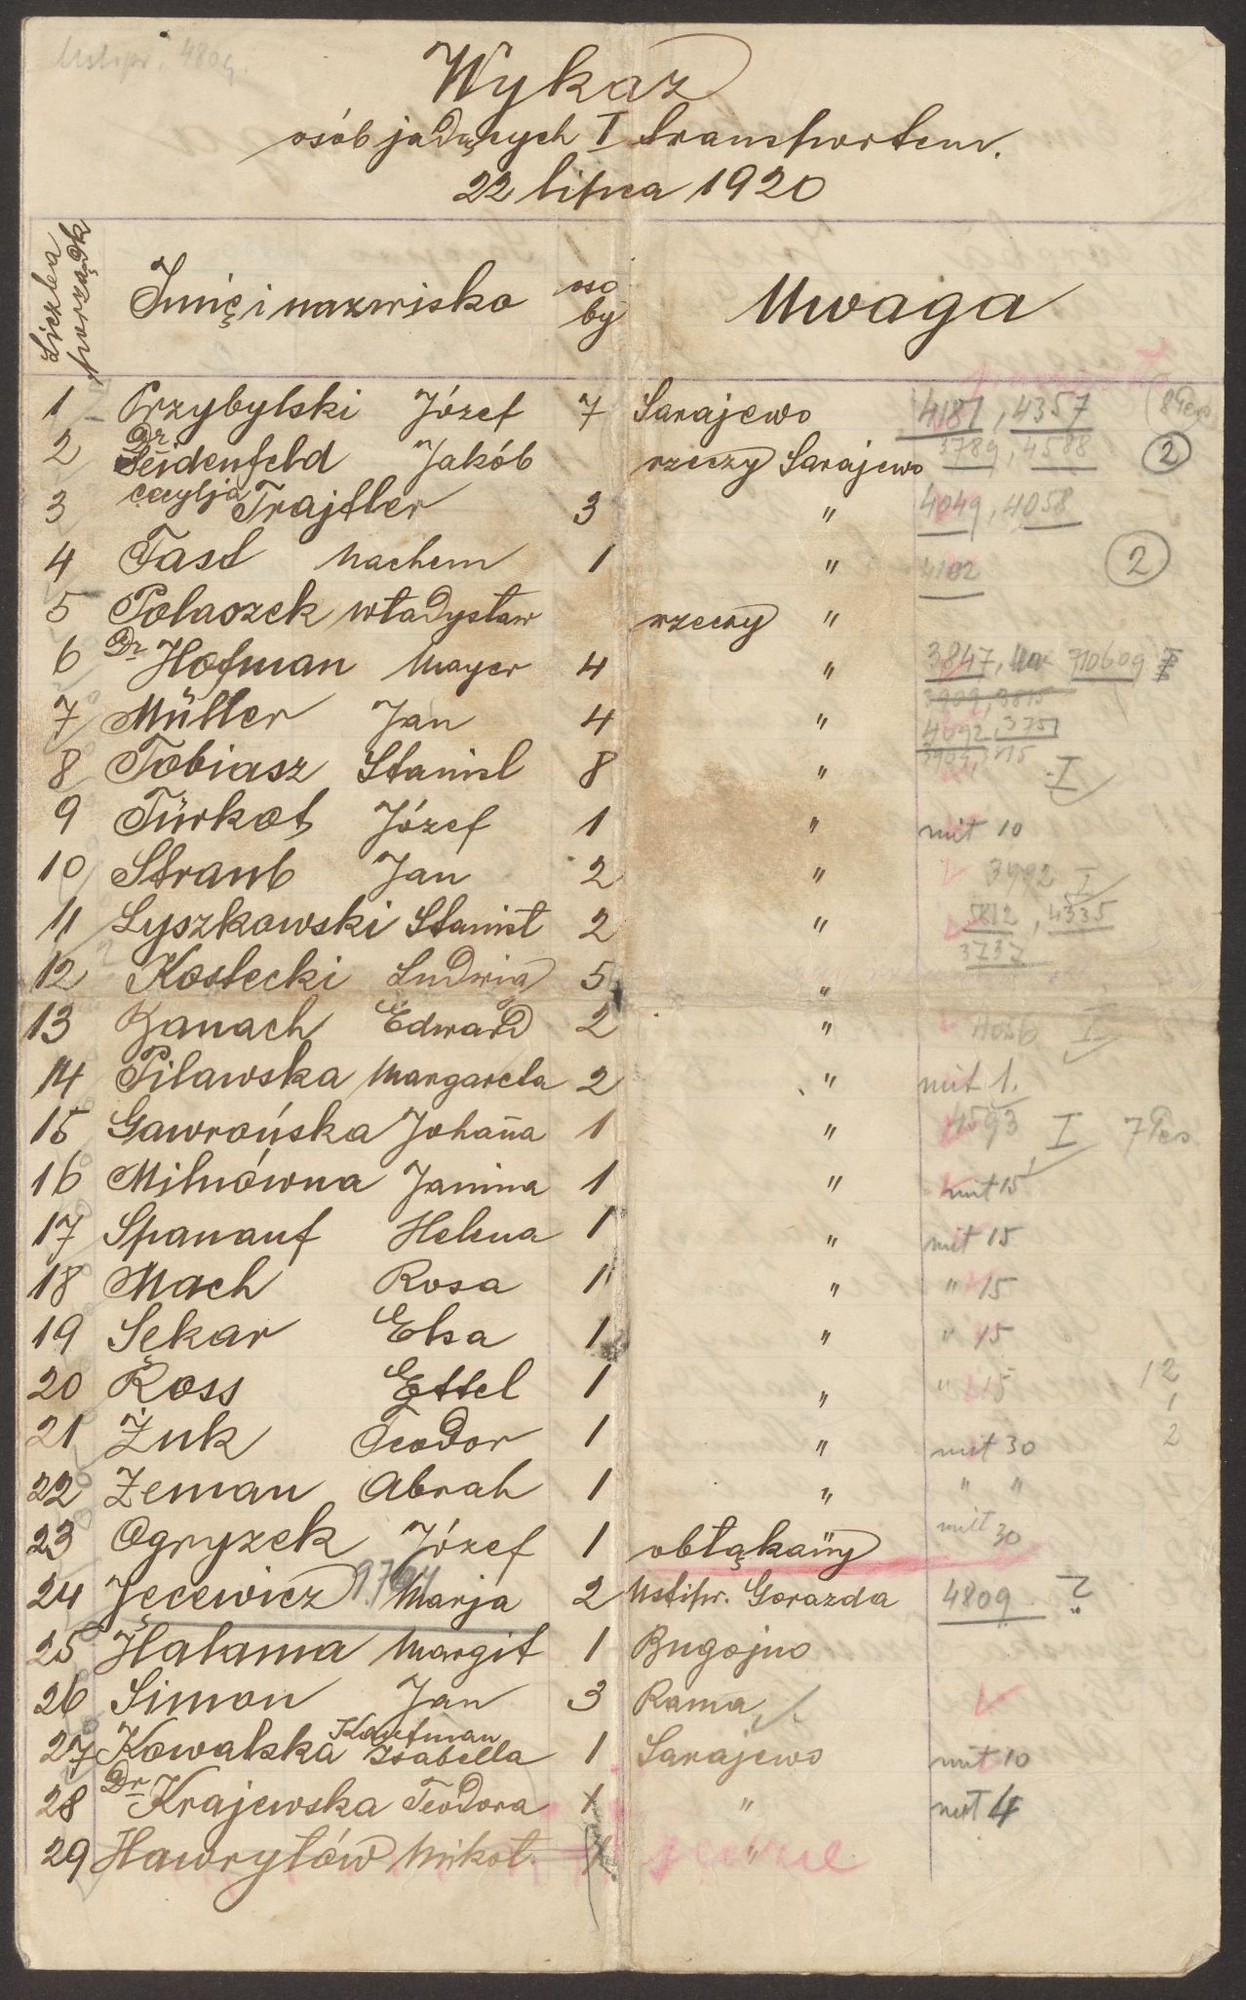 Ustipr. 4809.
Wykaz
osób jadących I transportem.
22 lipca 1920
Liczba porządk Imię i nazwisko osoby Uwaga
1 Przybylski Józef 7 Sarajewo 4187, 4357
2 Dr Seidenfeld Jakób rzeczy Sarajewo 3789, 4588 2
3 Cecylja Trajtler 3 " 4049, 4058
4 Tast Nachem 1 " 4102 2
5 Polaszek Władysław rzeczy "
6 Dr Hofman Mayer 4 " 3847, 710609
7 Müller Jan 4 " 4092, 3751
8 Tobiasz Stanisł 8 " I
9 Türkot Józef 1 " mit 10
10 Straub Jan 2 " 3992 I
11 Lyszkowski Stanisł 2 " 5812, 4335
3737
12 Kostecki Ludwig 5 "
13 Banach Edward 2 " 4056 I
14 Pilawska Margareta 2 " mit 1.
15 Gawrońska Johanna 1 " 4593 I 7 Pers
16 Milnówna Janina 1 " mit 15
17 Spanauf Helena 1 " mit 15
18 Mach Rosa 1 " " 15
19 Sękar Elsa 1 " " 15
20 Ross Ettel 1 " " 15 12
21 Żuk Teodor 1 " mit 30 2
22 Zeman Abrah 1 " " "
23 Ogryzek Józef 1 obłąkany mit 30
24 Jęcewicz Marja 2 Ustipr. Gorazda 4809 ?
25 Halama Margit 1 Bugojno
26 Simon Jan 3 Rama
27 Kowalska Kaufman Isabella 1 Sarajewo mit 10
28 Dr Krajewska Teodora 1 " mit 4
29 Hawryłów Mikoł. 1 "